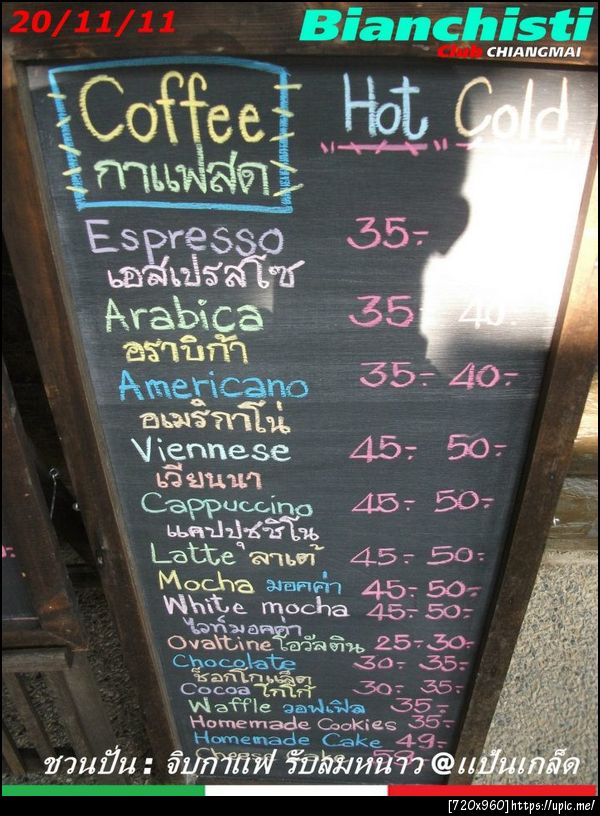 20/11/11
Bianchisti
Club CHIANGMAI
Coffee Hot Cold
กาแฟสด
Espresso 35.-
เอสเปรสโซ
Arabica 35.- 40.-
อราบิก้า
Americano 35.- 40.-
อเมริกาโน่
Viennese 45.- 50.-
เวียนนา
Cappuccino 45.- 50.-
แคปปุชชิโน
Latte ลาเต้ 45.- 50.-
Mocha มอคค่า 45.- 50.-
White mocha 45.- 50.-
ไวท์มอคค่า
Ovaltine โอวัลติน 25.- 30.-
Chocolate 30.- 35.-
ช็อกโกแล็ต
Cocoa โกโก้ 30.- 35.-
Waffle วอฟเฟิล 35.-
Homemade Cookies 35.-
Homemade Cake 49.-
ชวนปั่น : จิบกาแฟ รับลมหนาว @แป้นเกล็ด
[720x960]https://upic.me/